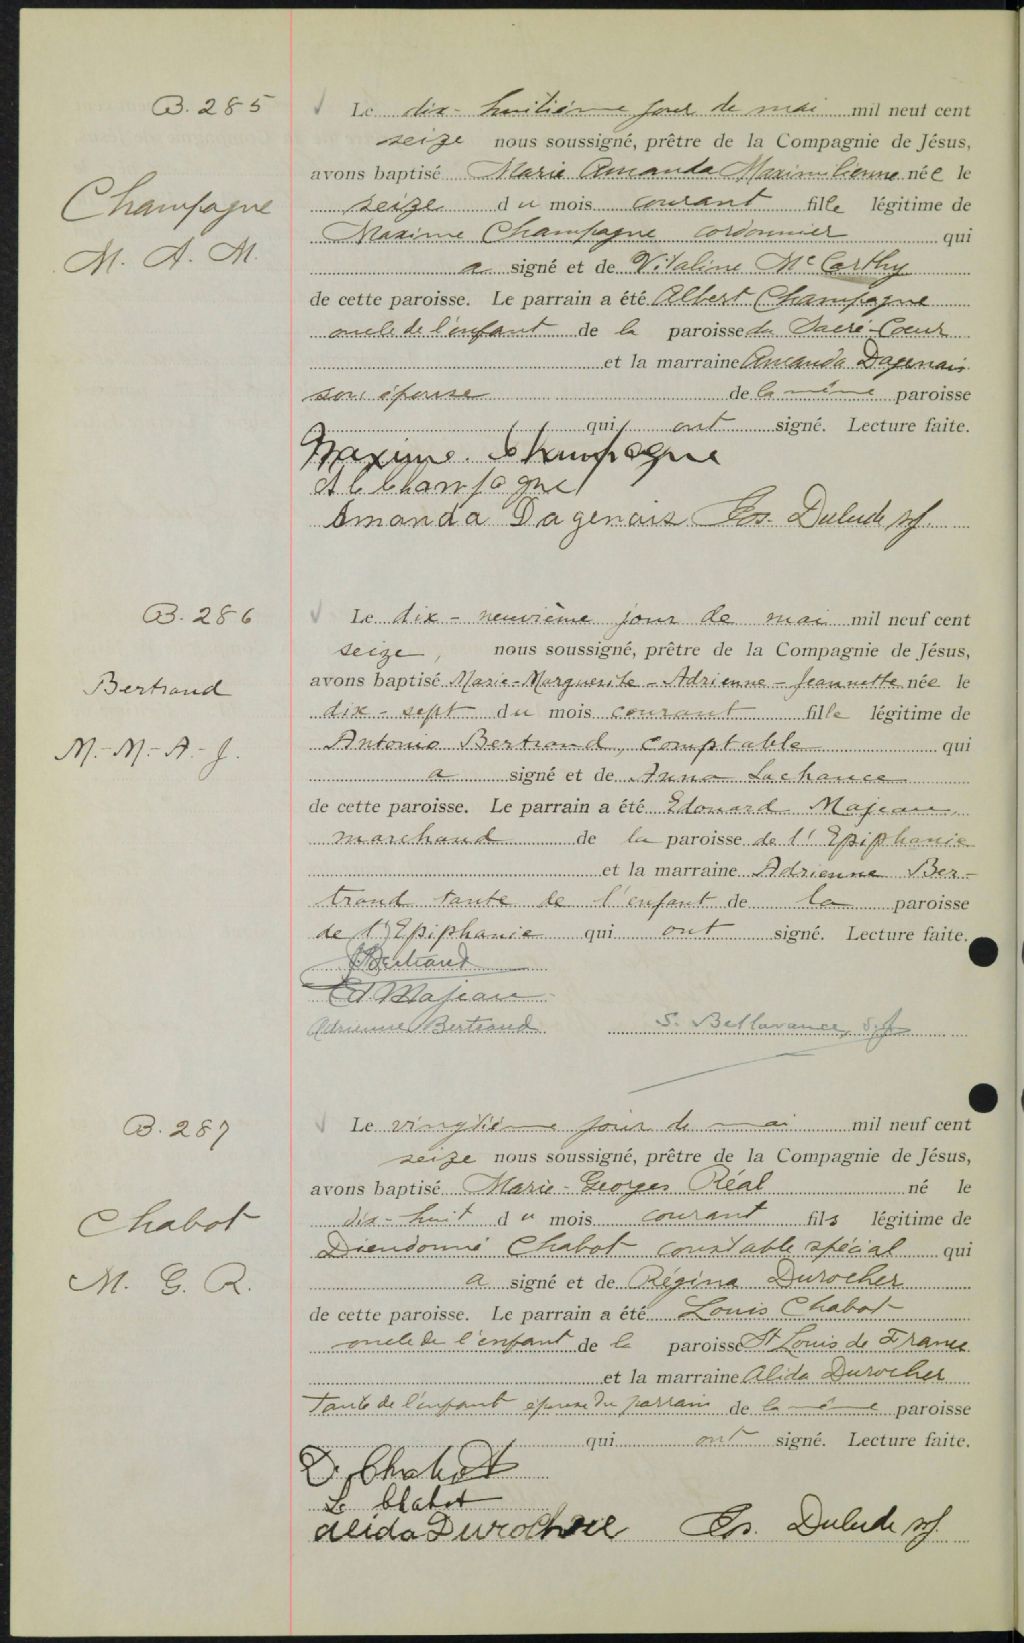 B. 285
Champagne
M. A. M.
Le dix-huitième jour de mai mil neuf cent
seize nous soussigné, prêtre de la Compagnie de Jésus,
avons baptisé Marie Amanda Maximilienne née le
seize du mois courant fille légitime de
Maxime Champagne cordonnier qui
a signé et de Vitaline McCarthy
de cette paroisse. Le parrain a été Albert Champagne
oncle de l'enfant de la paroisse du Sacré-Coeur
et la marraine Amanda Dagenais
son épouse de la même paroisse
qui ont signé. Lecture faite.
Maxime Champagne
Al Champagne
Amanda Dagenais Jos. Dulude sj.
B. 286
Bertrand
M.-M.-A.-J.
Le dix-neuvième jour de mai mil neuf cent
seize, nous soussigné, prêtre de la Compagnie de Jésus,
avons baptisé Marie-Marguerite-Adrienne-Jeannette née le
dix-sept du mois courant fille légitime de
Antonio Bertrand, comptable qui
a signé et de Anna Lachance
de cette paroisse. Le parrain a été Edouard Majeau,
marchand de la paroisse de l'Epiphanie
et la marraine Adrienne Ber-
trand tante de l'enfant de la paroisse
de l'Epiphanie qui ont signé. Lecture faite.
Bertrand
Ed Majeau
Adrienne Bertrand S. Bellavance, s.j.
B. 287
Chabot
M. G. R.
Le vingtième jour de mai mil neuf cent
seize nous soussigné, prêtre de la Compagnie de Jésus,
avons baptisé Marie-Georges Réal né le
dix-huit du mois courant fils légitime de
Dieudonné Chabot constable spécial qui
a signé et de Régina Durocher
de cette paroisse. Le parrain a été Louis Chabot
oncle de l'enfant de la paroisse St Louis de France
et la marraine Alida Durocher
tante de l'enfant épouse du parrain de la même paroisse
qui ont signé. Lecture faite.
D. Chabot
L. Chabot
Alida Durocher Jos. Dulude sj.